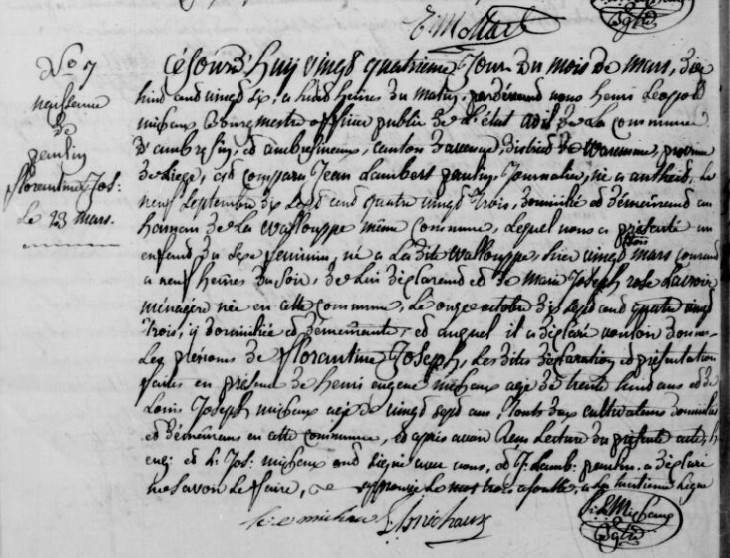 E Mottart
N.o 7
naissence
de
paulin
florantine Jos:
Le 23 mars.
Céjourd'Huy vingt quatrieme Jour du mois de mars, dix
huit cent vingt six, a huit heures du matin, pardevant nous henri Leopold
micheaux, Bourgmestre officier public de L'état civil de La commune
D'ambresin, et ambresineaux, canton d'avenne, district de Waremme, province
de Liege, est comparu Jean Lambert paulin, Journalier, né a antheid, Le
neuf Septembre dix Sept cent quatre vingt trois, domicilié et demeurant au
hameau de La Wallouppe même commune, Lequel nous a présenté un
enfant du Sexe feminin, né a La dit Wallouppe, hier vingt trois mars courant
a neuf heures du Soir, de Lui déclarant et de marie Joseph rose Lacroix
ménagère née en cette commune, Le onze octobre dix Sept cent quatre vingt
trois, y domiciliée et demeurante, et auquel il a déclaré vouloir donner
Les prénoms de florantine Joseph, Les dites déclaration et présentation
faites en présence de henri eugene micheaux agé de trente huit ans et de
Louis Joseph micheaux agé de vingt Sept ans, touts deux cultivateurs domiciliés
et demeurans en cette commune, et après avoir Reçus Lecture du présente acte, h:
eug: et L: Jos: micheaux ont Signé avec nous, et J: Lamb: paulin a déclaré
ne Savoir Le faire, approuvé Le mot trois ajoutté a La huitieme Ligne
h: e micheaux L J micheaux
H: L Micheaux
Bgtre